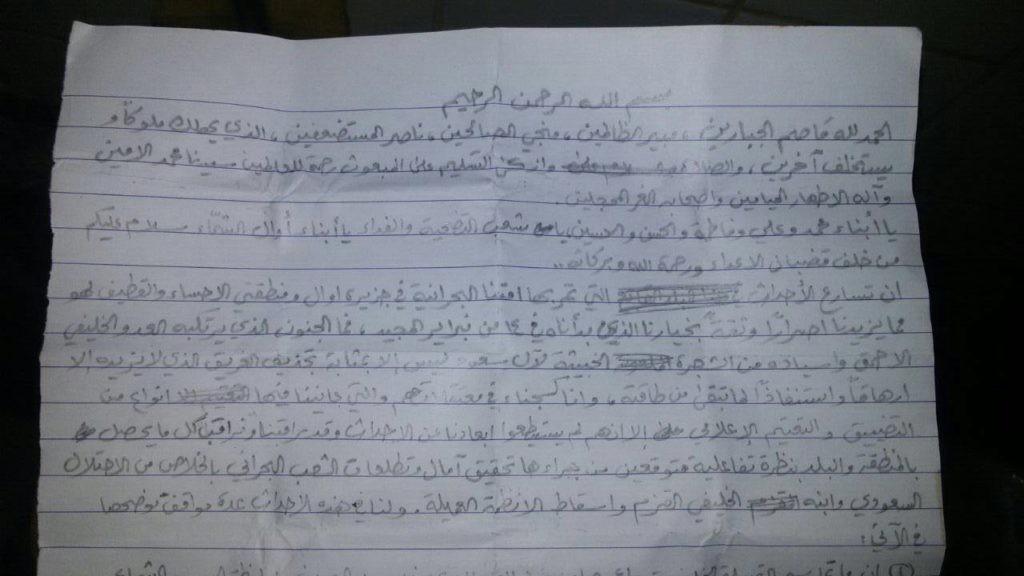 بسم الله الرحمن الرحيم
الحمد لله قاصم الجبارين، مبير الظالمين، منجي الصالحين، ناصر المستضعفين، الذي يهلك ملوكاً و
يستخلف آخرين، والصلاة وازكى التسليم على المبعوث رحمة للعالمين سيدنا محمد الامين
وآله الاطهار الميامين واصحابه الغر المحجلين.
يا أبناء محمد وعلي وفاطمة والحسن والحسين يا شعب التضحية والفداء يا أبناء أوال الشمّاء سلام عليكم
من خلف قضبان الاعداء ورحمة الله وبركاته..
ان تسارع الأحداث التي تمر بها امتنا البحرانية في جزيرة اوال ومنطقتي الاحساء والقطيف لهو
مما يزيدنا اصراراً وثقةً بخيارنا الذي بدأناه في ١٤ من فبراير المجيد، فما الجنون الذي يرتكبه العدو الخليفي
الاحمق واسياده من الشجرة الخبيثة لآل سعود ليس الا بمثابة تجذيف الغريق الذي لا يزيده الا
ارهاقاً واستنفاذاً لما تبقى من طاقته، وانا كسجناء في معتقلاتهم والتي عانينا فيها انواع من
التضييق والتعتيم الإعلامي الا انهم لم يستطيعوا ابعادنا عن الاحداث وقد راقبنا ونراقب كل ما يحصل
بالمنطقة والبلد بنظرة تفاعلية متوقعين من جراءها تحقيق آمال وتطلعات الشعب البحراني بالخلاص من الاحتلال
السعودي وابنه الخليفي القزم واسقاط الانظمة العميلة. ولنا في هذه الأحداث عدة مواقف نوضحها
في الآتي:
① ان